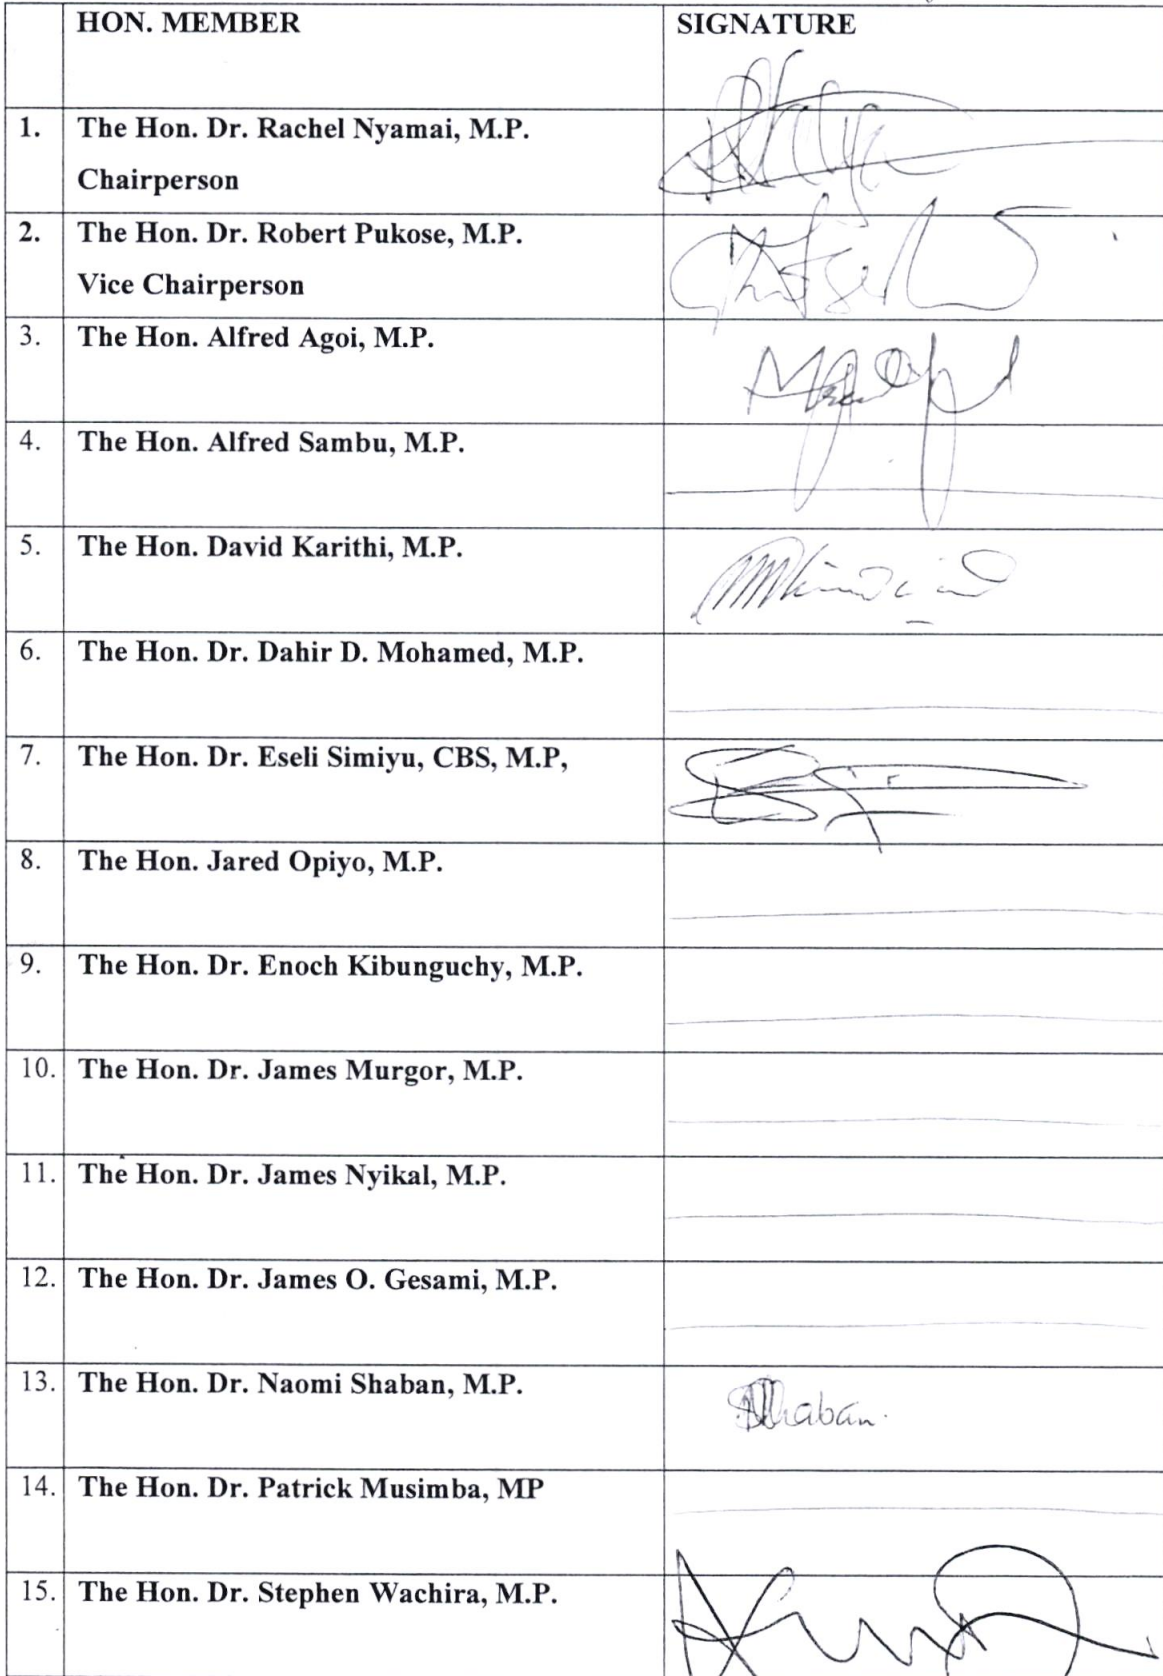 HON. MEMBER SIGNATURE
1. The Hon. Dr. Rachel Nyamai, M.P.
Chairperson
2. The Hon. Dr. Robert Pukose, M.P.
Vice Chairperson
3. The Hon. Alfred Agoi, M.P.
4. The Hon. Alfred Sambu, M.P.
5. The Hon. David Karithi, M.P.
6. The Hon. Dr. Dahir D. Mohamed, M.P.
7. The Hon. Dr. Eseli Simiyu, CBS, M.P,
8. The Hon. Jared Opiyo, M.P.
9. The Hon. Dr. Enoch Kibunguchy, M.P.
10. The Hon. Dr. James Murgor, M.P.
11. The Hon. Dr. James Nyikal, M.P.
12. The Hon. Dr. James O. Gesami, M.P.
13. The Hon. Dr. Naomi Shaban, M.P.
14. The Hon. Dr. Patrick Musimba, MP
15. The Hon. Dr. Stephen Wachira, M.P.